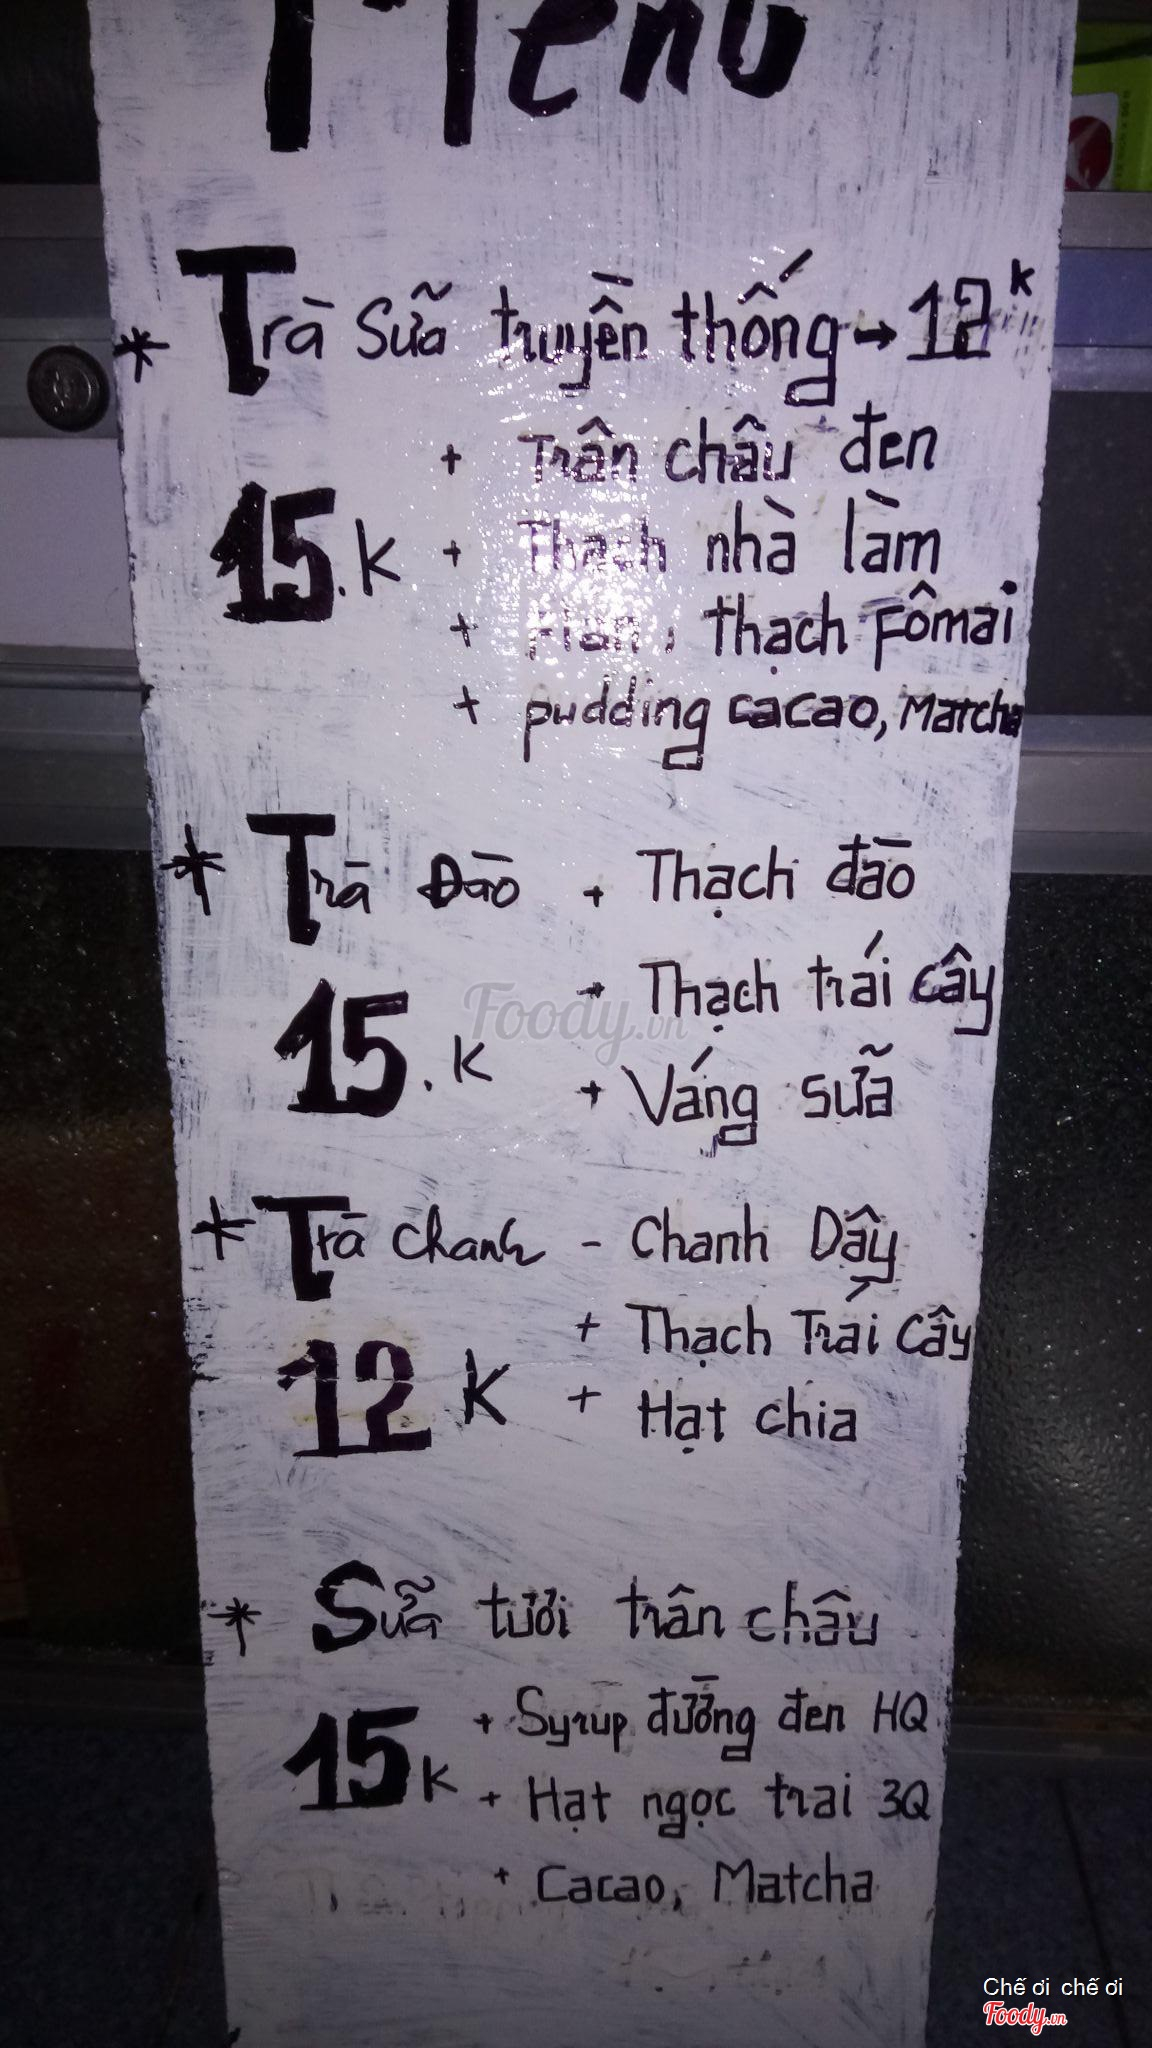 Menu
* Trà Sữa truyền thống → 12k
+ Trân châu đen
15.k + Thạch nhà làm
+ Flan, thạch Fômai
+ pudding cacao, Matcha
* Trà Đào + Thạch đào
+ Thạch trái cây
15.k
+ Váng sữa
* Trà chanh - Chanh Dây
+ Thạch Trái Cây
12 K + Hạt chia
* Sữa tươi trân châu
+ Syrup đường đen HQ
15k + Hạt ngọc trai 3Q
+ Cacao, Matcha
Foody.vn
Chế ơi chế ơi
Foody.vn